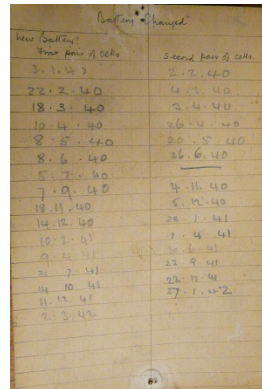 Battery Charged
New Battery:
First pair of cells.
3.1.4
22.2.40
18.3.40
10.4.40
8.5.40
8.6.40
5.7.40
7.9.40
18.11.40
14.12.40
10.2.41
9.4.41
21 7 41
14 10 41
11.12 41
2.3.42
Second pair of cells.
2.2.40
4.3.40
3.4.40
26.4.40
20.5.40
26.6.40
4.11.40
5.12.40
1.41
1.4.41
30.6.41
22.9.41
22.11.41
27.1.42